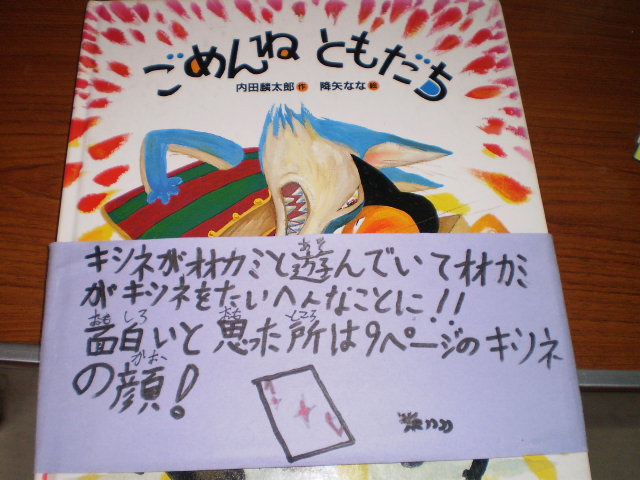 ごめんね ともだち
内田麟太郎 作 降矢なな 絵
キツネがオオカミと遊んでいてオオカミ
がキツネをたいへんなことに!!
面白いと思った所は9ページのキツネ
の顔!